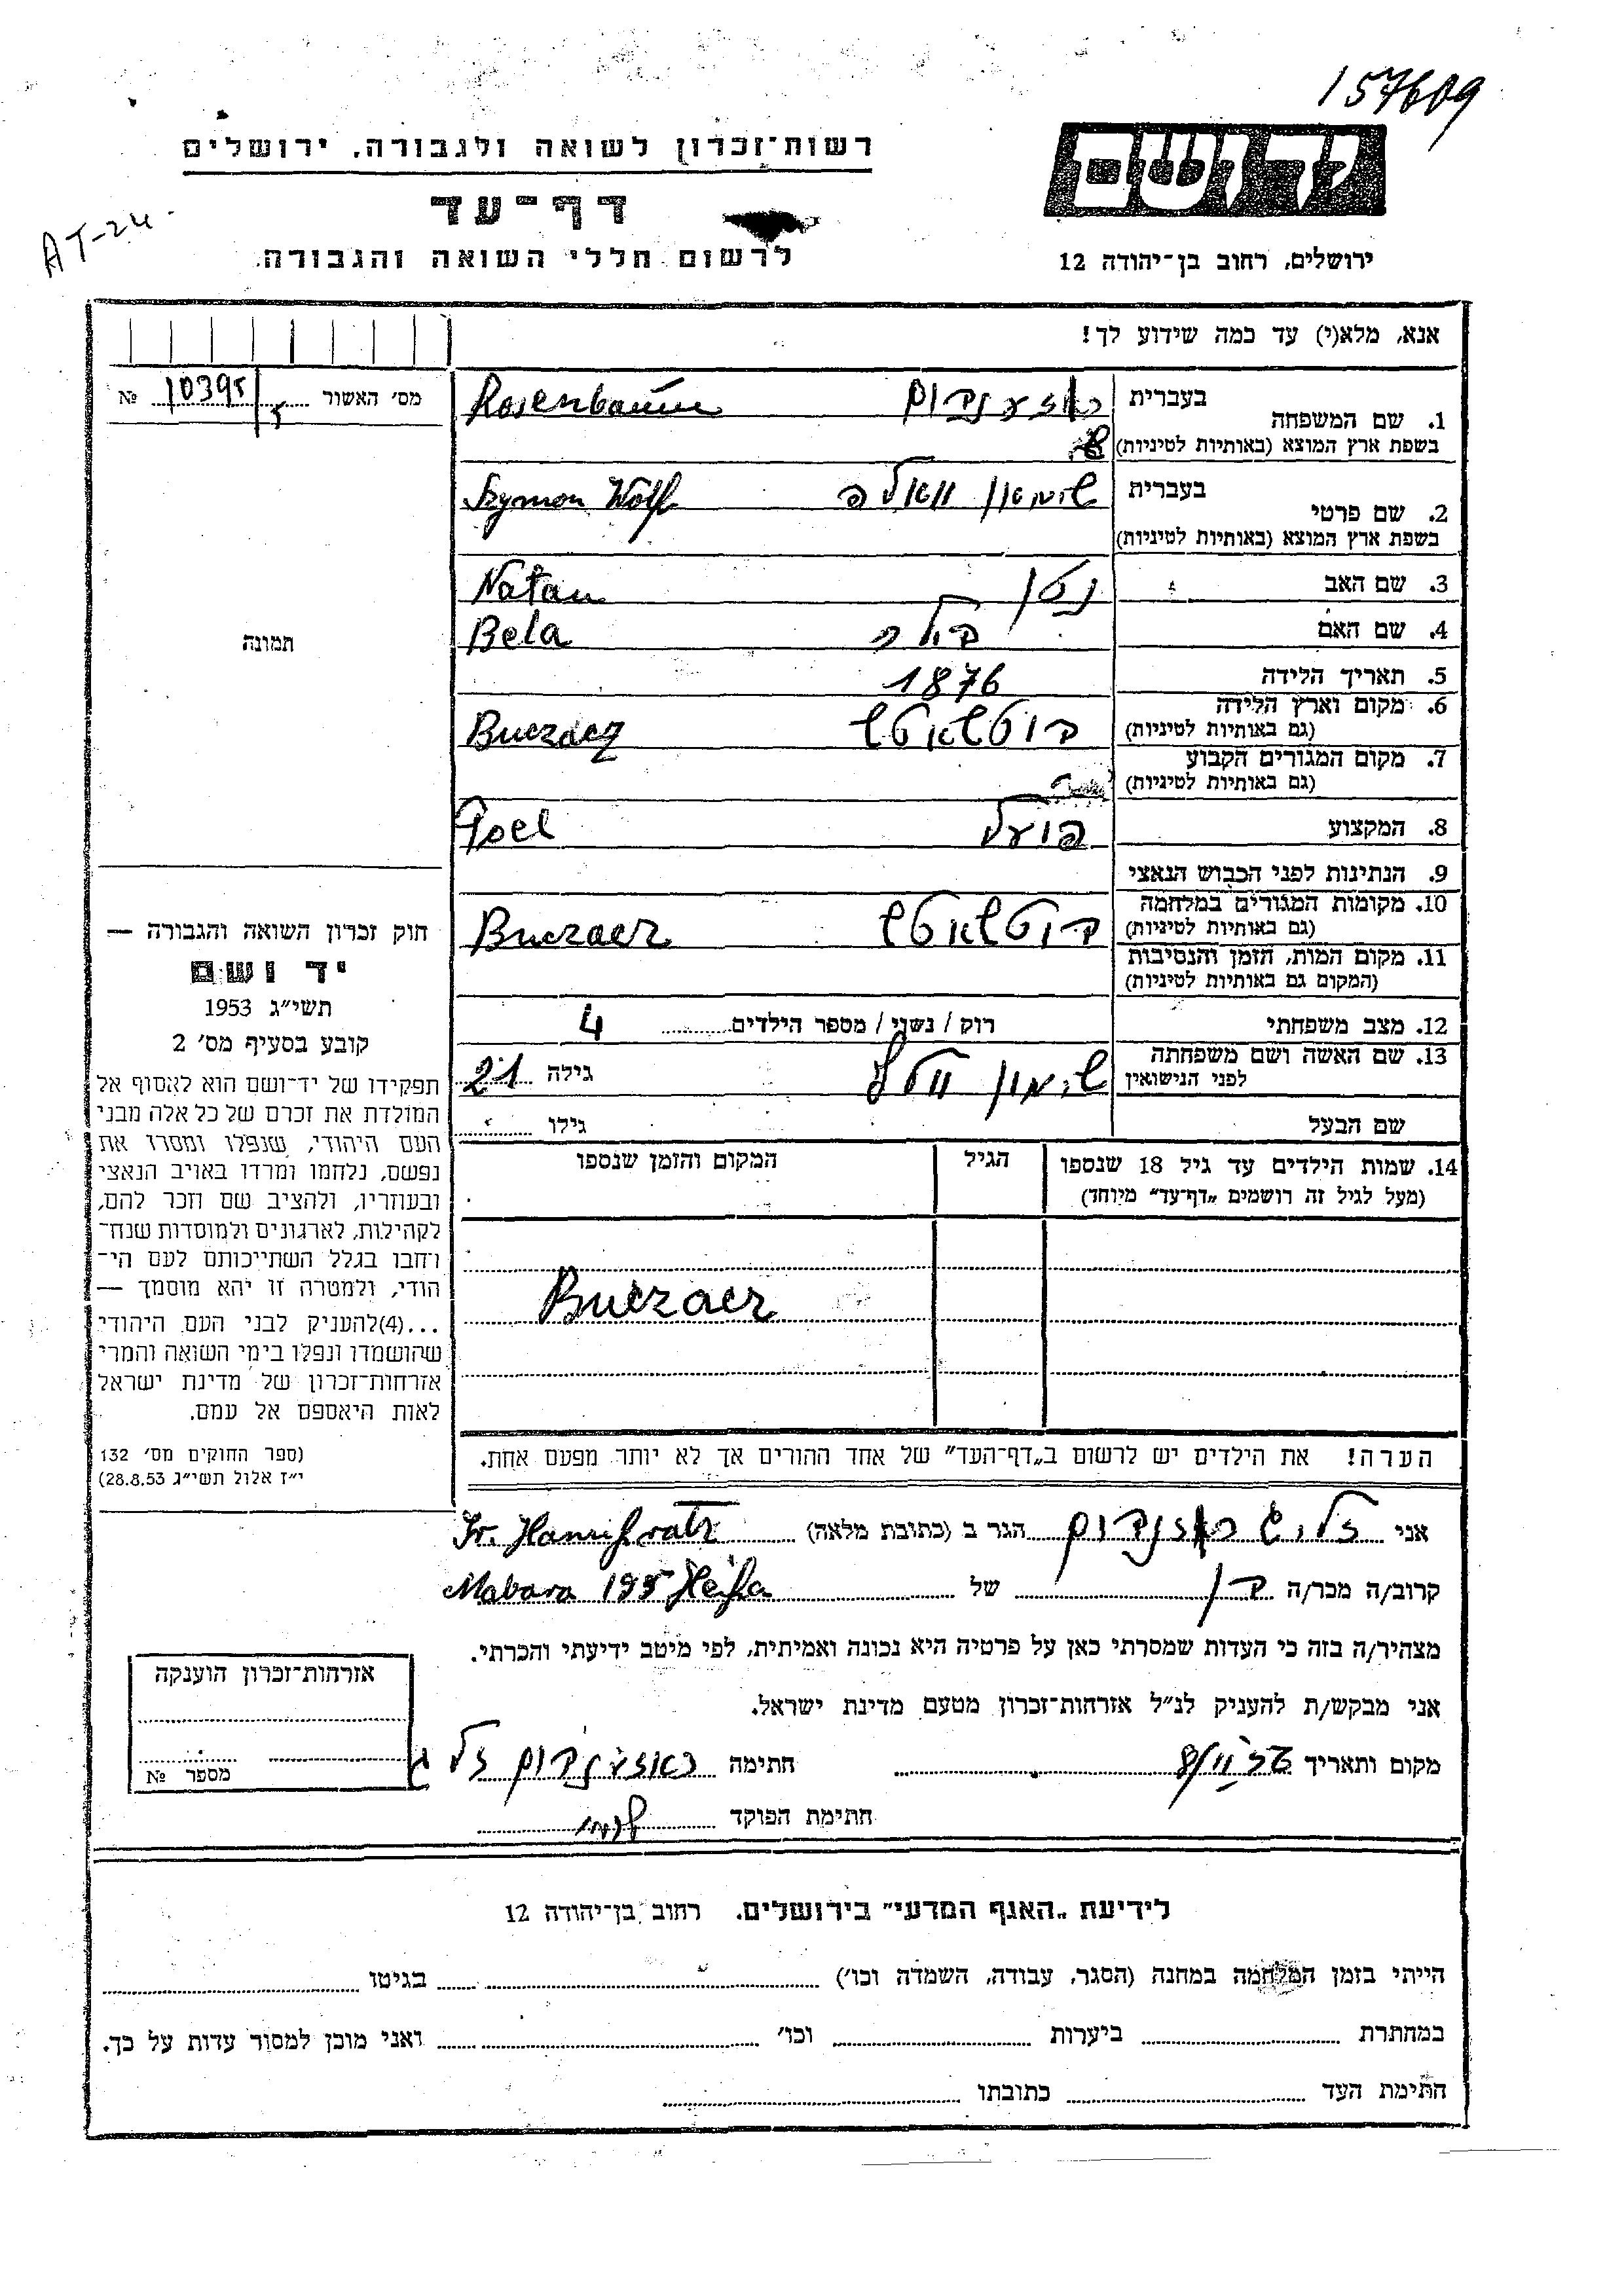 157609
רשות־זכרון לשואה ולגבורה, ירושלים
יד ושם
דף־עד
AT-24
לרשום חללי השואה והגבורה.
ירושלים, רחוב בן־יהודה 12
אנא, מלא(י) עד כמה שידוע לך!
מס׳ האשור 10395 №
1. שם המשפחה
בעברית ראזענבוים Rosenbaum
בשפת ארץ המוצא (באותיות לטיניות)
2. שם פרטי
בעברית שימאן וואלף Szymon Wolf
בשפת ארץ המוצא (באותיות לטיניות)
3. שם האב נטן Natan
4. שם האם בלה Bela
תמונה
5. תאריך הלידה 1876
6. מקום וארץ הלידה בוטשאטש Buczacz
(גם באותיות לטיניות)
7. מקום המגורים הקבוע
(גם באותיות לטיניות)
8. המקצוע פועל Poel
9. הנתינות לפני הכבוש הנאצי
10. מקומות המגורים במלחמה בוטשאטש Buczacz
(גם באותיות לטיניות)
11. מקום המות, הזמן והנסיבות
(המקום גם באותיות לטיניות)
12. מצב משפחתי רוק / נשוי / מספר הילדים 4
13. שם האשה ושם משפחתה
לפני הנישואין שימון גילה 21
שם הבעל גילו
14. שמות הילדים עד גיל 18 שנספו הגיל המקום והזמן שנספו
(מעל לגיל זה רושמים „דף־עד״ מיוחד)
Buczacz
הערה! את הילדים יש לרשום ב„דף־העד״ של אחד ההורים אך לא יותר מפעם אחת.
חוק זכרון השואה והגבורה —
יד ושם
תשי״ג 1953
קובע בסעיף מס׳ 2
תפקידו של יד־ושם הוא לאסוף אל
המולדת את זכרם של כל אלה מבני
העם היהודי, שנפלו ומסרו את
נפשם, נלחמו ומרדו באויב הנאצי
ובעוזריו, ולהציב שם וזכר להם,
לקהילות, לארגונים ולמוסדות שנח־
רחבו בגלל השתייכותם לעם הי־
הודי, ולמטרה זו יהא מוסמך —
...(4)להעניק לבני העם היהודי
שהושמדו ונפלו בימי השואה והמרי
אזרחות־זכרון של מדינת ישראל
לאות היאספם אל עמם.
(ספר החוקים מס׳ 132
י״ז אלול תשי״ג 28.8.53)
אני זליג ראזנבוים הגר ב (כתובת מלאה)
קרוב/ה מכר/ה בן של Mabara 195 Heifa
מצהיר/ה בזה כי העדות שמסרתי כאן על פרטיה היא נכונה ואמיתית, לפי מיטב ידיעתי והכרתי.
אני מבקש/ת להעניק לנ״ל אזרחות־זכרון מטעם מדינת ישראל.
מקום ותאריך חתימה ראזענבוים זליג
חתימת הפוקד
אזרחות־זכרון הוענקה
מספר №
לידיעת „האגף המדעי״ בירושלים, רחוב בן־יהודה 12
הייתי בזמן המלחמה במחנה (הסגר, עבודה, השמדה וכו׳) בגיטו
במחתרת ביערות וכו׳ ואני מוכן למסור עדות על כך.
חתימת העד כתובתו